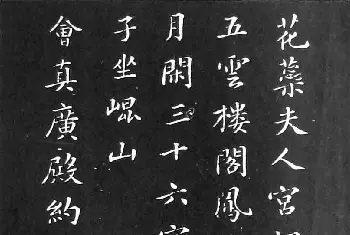 花蘂夫人宮
五雲楼閣鳳
月閒三十六
子坐崐山
會真廣殿約